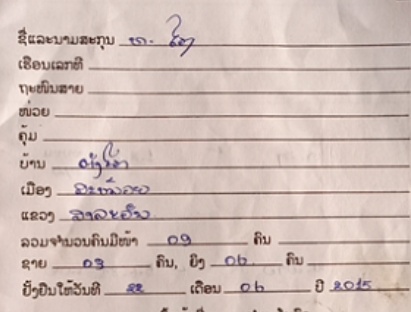 ຊື່ແລະນາມສະກຸນ ທ.
ເຮືອນເລກທີ
ຖະໜົນສາຍ
ໜ່ວຍ
ຄຸ້ມ
ບ້ານ
ເມືອງ ລະໜ້ຳ
ແຂວງ ສາລະວັນ
ລວມຈຳນວນຄົນມີໜ້າ 09 ຄົນ
ຊາຍ 03 ຄົນ, ຍິງ 06 ຄົນ
ຢັ້ງຢືນໃຫ້ວັນທີ 22 ເດືອນ 06 ປີ 2015